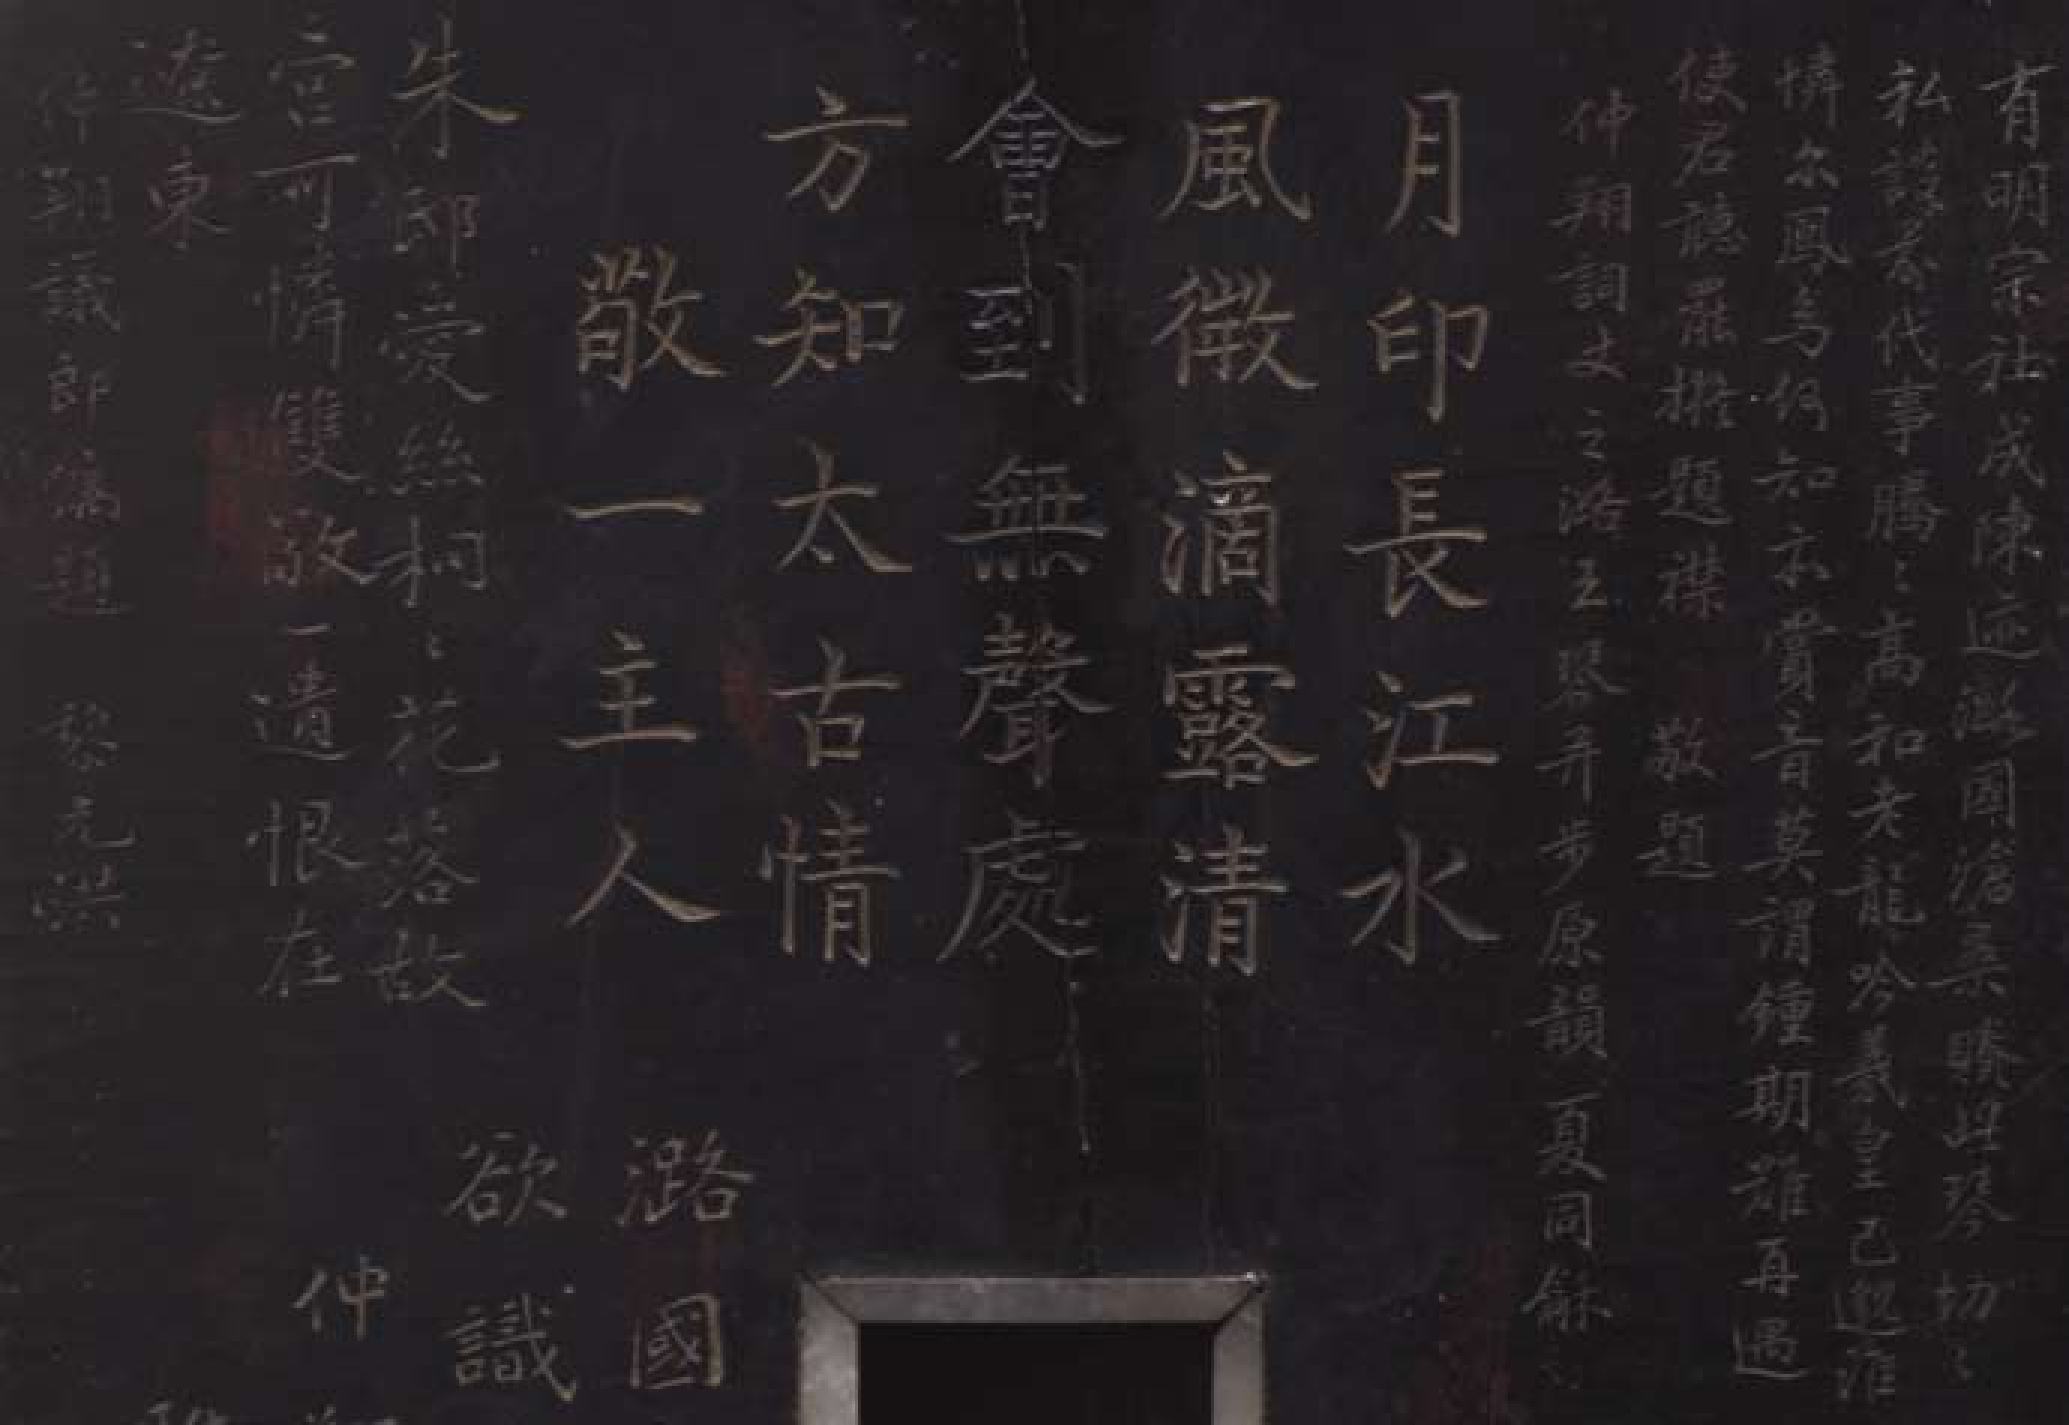 有明宗社成陳迹淵國滄桑賸此琴切〻
私談前代事騰〻高和老龍吟羲皇已邈誰
憐尔鳳鳥何知亦賞音莫謂鍾期難再遇
使君聽罷擬題襟 敬題
仲翔詞丈之潞王琴并步原韻夏同龢
月印長江水
風微滴露清
會到無聲處
方知太古情
敬一主人
朱邸愛絲桐〻花落故
宮可憐雙敬一遺恨在
遼東
仲翔議郎屬題 黎元洪
潞國
欲識
仲